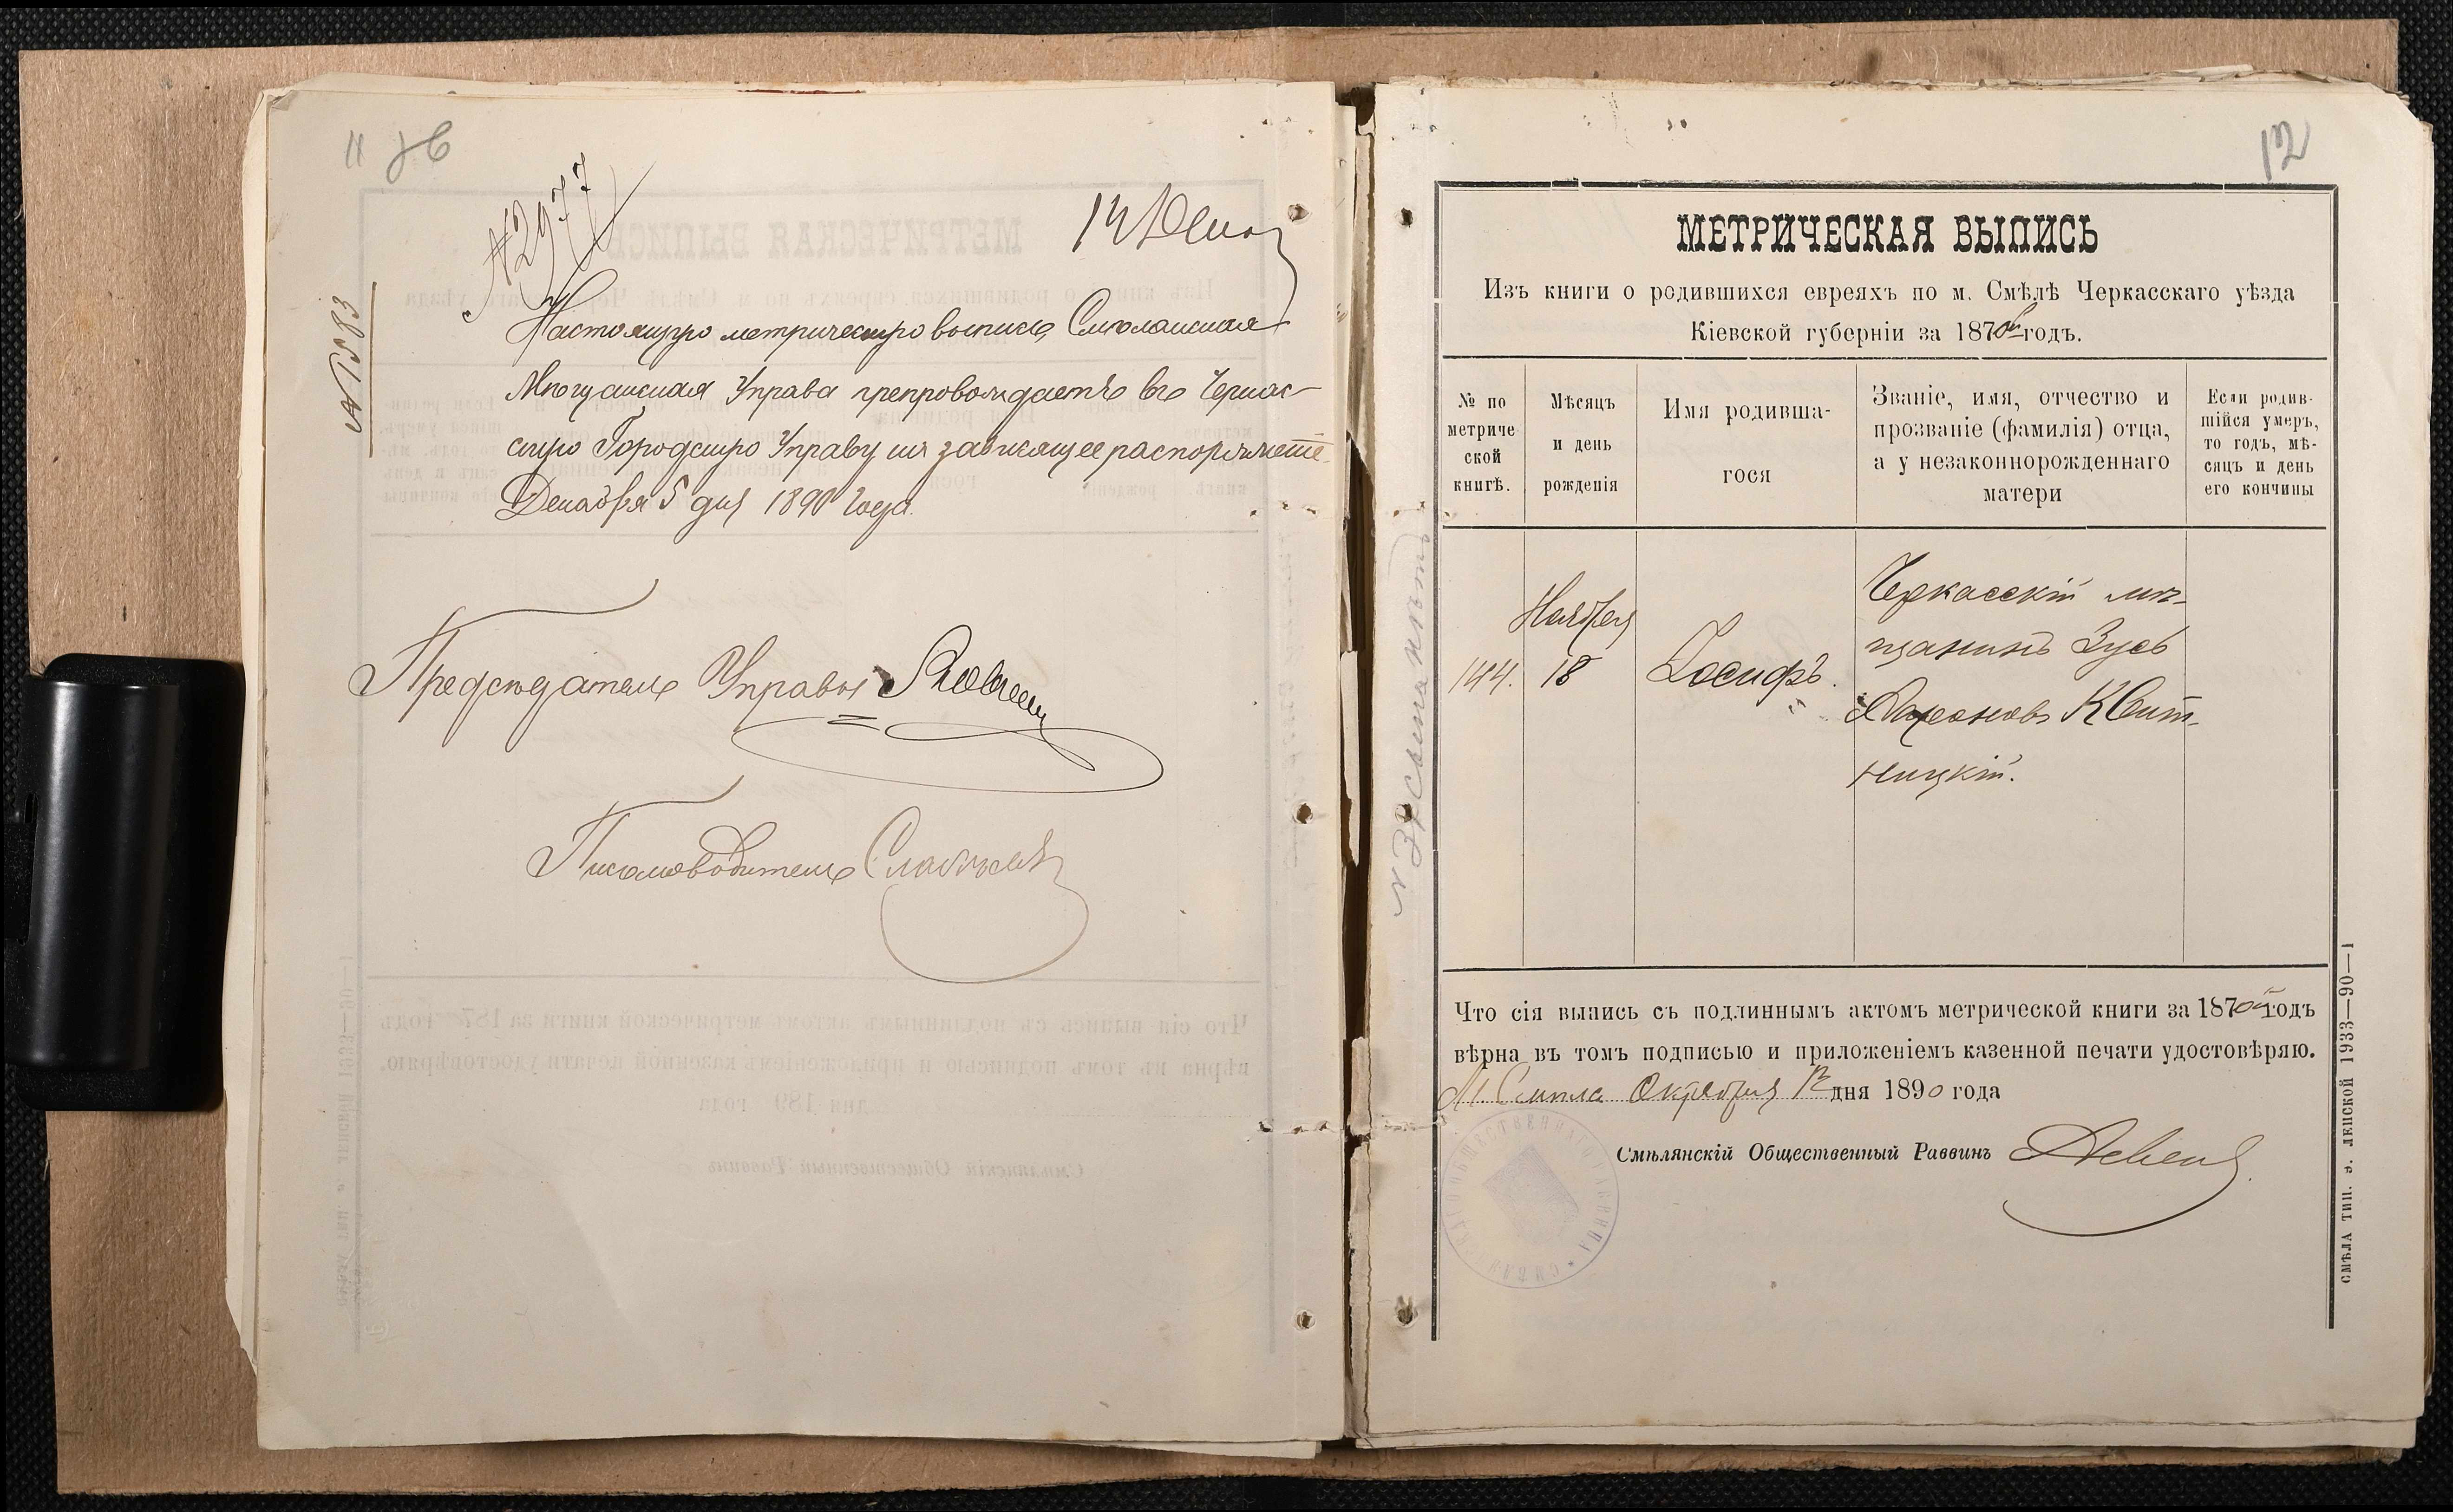 11
№ 2977
№ 1583
Настоящую метрическую выпись Смѣлянская
Мѣщанская Управа препровождаетъ въ Черкас-
скую Городскую Управу на зависящее распоряженіе
Декабря 5 дня 1890 года.
Предсѣдатель Управы
Письмоводитель
12
МЕТРИЧЕСКАЯ ВЫПИСЬ
Изъ книги о родившихся евреяхъ по м. Смѣлѣ Черкасскаго уѣзда
Кіевской губерніи за 1870й годъ.
№ по
метриче
ской
книгѣ.
Мѣсяцъ
и день
рожденія
Имя родивша-
гося
Званіе, имя, отчество и
прозваніе (фамилія) отца,
а у незаконнорожденнаго
матери
Если родив-
шійся умеръ,
то годъ, мѣ-
сяцъ и день
его кончины
144.
Ноября
18
Іосифъ.
Черкасскій мѣ-
щанинъ Зусь
Аароновъ Квит-
ницкій.
Что сія выпись съ подлиннымъ актомъ метрической книги за 1870й годъ
вѣрна въ томъ подписью и приложеніемъ казенной печати удостовѣряю.
М. Смѣла Октября 12 дня 1890 года
Смѣлянскій Общественный Раввинъ
СМѢЛА ТИП. Э. ЛЕПСКОЙ 1933—90—1